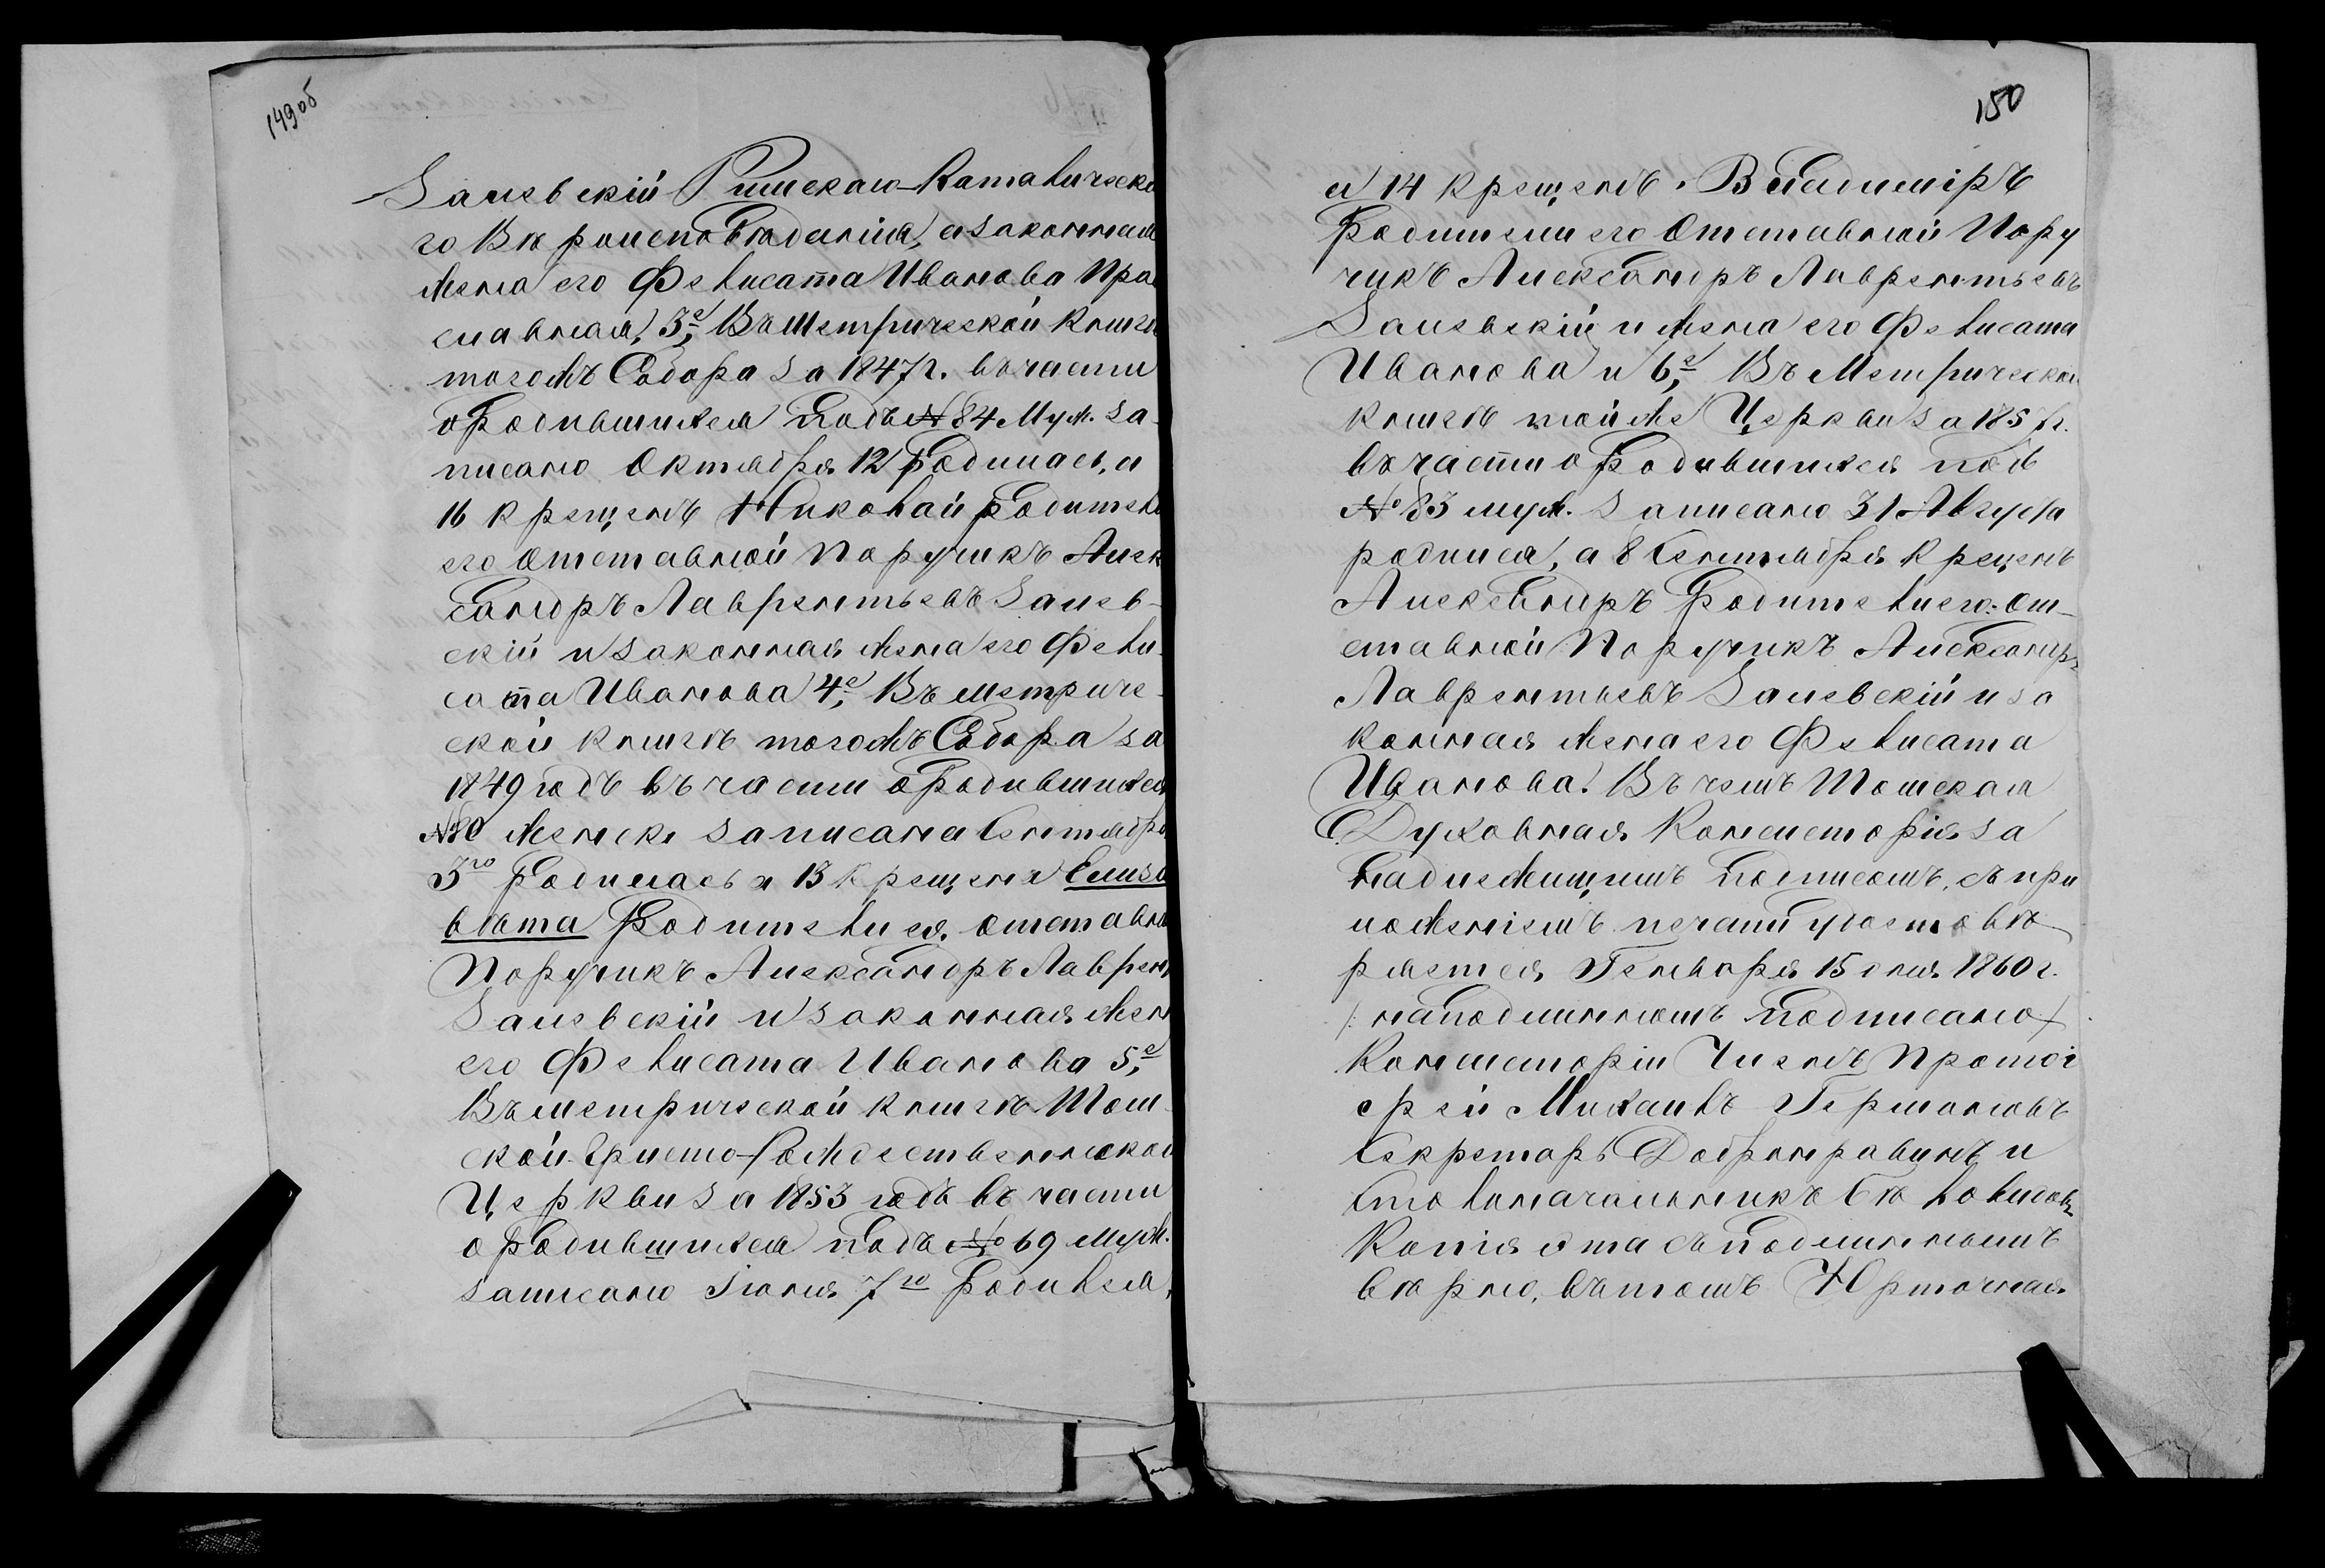 149 об
Залевскій Римскаго-Католическа
го Вѣроисповѣданія, а законная
жена его Фелисата Иванова Пра
славная, 3е, Въ Метрической книге
тогожъ Собора за 1847 г. въ части
о родившихся подъ № 84 Муж. за-
писано Октября 12 родилась, а
16 крещенъ Николай родители
его Отставной Поручикъ Алек
сандръ Лаврентьевъ Залев-
скій и законная жена его Фели-
сата Иванова 4е, Въ Метриче-
ской книгѣ тогожъ Собора за
1849 годъ въ части о родившихся
№ 80 женск. записана Сентября
3го родилась а 13 крещена Елиза
вѣта Родители ея. Отставной
Поручикъ Александръ Лаврент
Залевскій и законная жена
его Фелисата Иванова 5е,
Въ метрической книгѣ Том-
ской Христо-Рождественской
Церкви за 1853 годъ въ части
о родившихся подъ № 69 муж.
записано Іюля 7го родился,
150
и 14 крещенъ. Владиміръ
Родители его Отставной Пору
чикъ Александръ Лаврентьевъ
Залевскій и жена его Фелисата
Иванова и 6е, Въ Метрической
книгѣ той же Церкви за 1857 г.
въ части о родившихся подъ
№ 83 муж. записано 31 Августа
родился, а 8 Сентября крещенъ
Александръ Родители его: От-
ставной Поручикъ Александръ
Лаврентьевъ Залевскій и за
конная жена его Фелисата
Иванова. Въ чемъ Томская
Духовная Консисторія за
надлежащимъ подписомъ, съ при
ложеніемъ печати удостовѣ
ряетъ Генваря 15 дня 1860 г.
/: на подлинномъ подписано /
Консисторіи Членъ Протоі
ерей Михаилъ Германовъ
Секретарь Добронравинъ и
Столоначальникъ
Копія эта съ подлиннымъ
вѣрно, въ томъ Юрточная